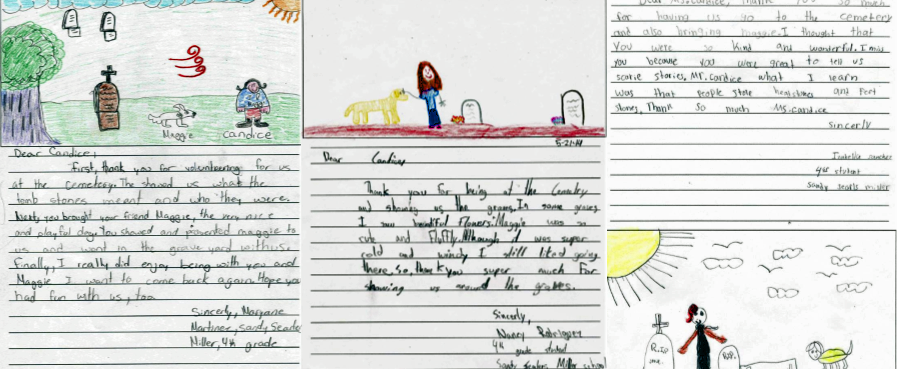 Maggie
Candice
Dear Candice,
First, thank you for volunteering for us
at the cemetery. The showed us what the
tomb stones meant and who they were.
Next, you brought your friend Maggie, the very nice
and playful dog. You showed and presented maggie to
us and went in the grave yard with us.
Finally, I really did enjoy being with you and
Maggie I want to come back again. Hope you
had fun with us, too.
Sincerly, Maryane
Martinez, Sandy Searles
Miller, 4th grade
5-21-14
Dear Candice
Thank you for being at the
and showing us the graves. In some graves
I saw beautiful flowers. Maggie was so
cute and Fluffly. Although it was super
cold and windy I still liked going
there. So, thank you super much for
showing us around the graves.
Sincerly,
Nancy
4th grade student
Sandy Searles Miller school
Dear Ms. Candice, Thank you so much
for having us go to the cemetery
and also bringing maggie. I thought that
you were so kind and wonderful. I miss
you because you were great to tell us
scarie stories, Mr. Candice what I learn
was that people stole headstones and Feet
stones, Thank so much Ms. candice
Sincerly
Isabella sanchez
4th student
Sandy searles miller
R.I.P
R.I.P.